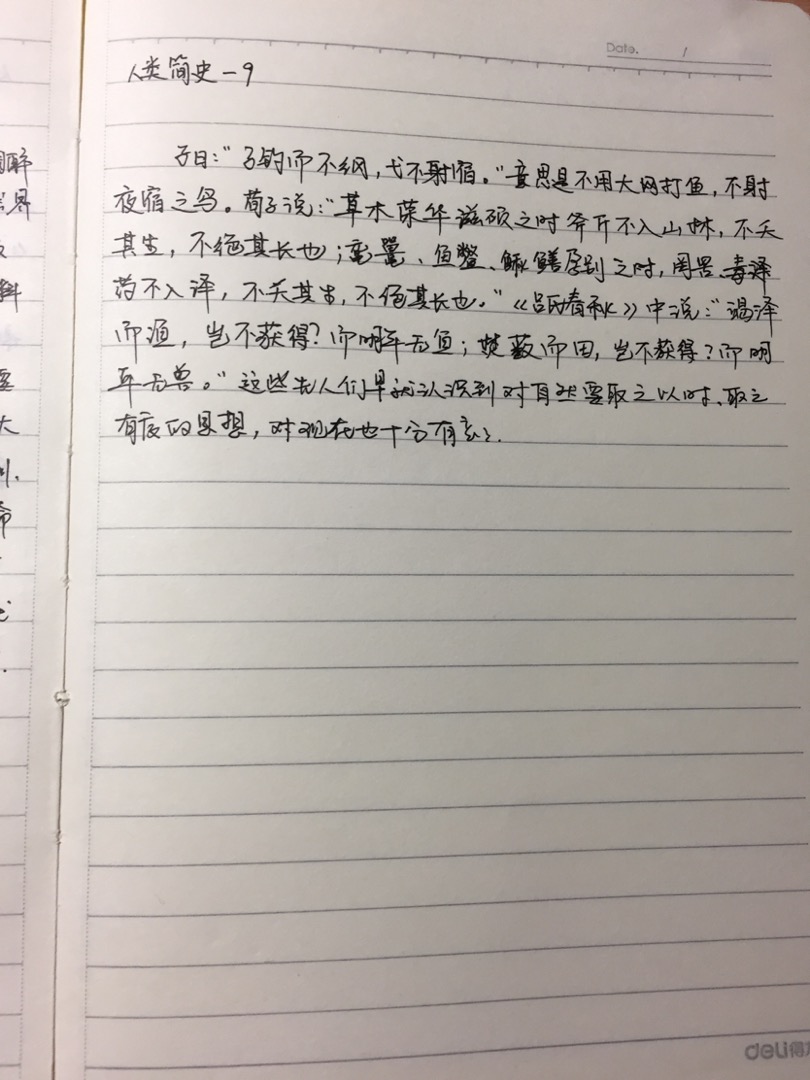 Date. /
人类简史-9
子曰："子钓而不纲，弋不射宿。"意思是不用大网打鱼，不射
夜宿之鸟。荀子说："草木荣华滋硕之时斧斤不入山林，不夭
其生，不绝其长也；鼋鼍、鱼鳖、鳅鳝孕别之时，罔罟、毒译
药不入泽，不夭其生，不绝其长也。"《吕氏春秋》中说："竭泽
而渔，岂不获得？而明年无鱼；焚薮而田，岂不获得？而明
年无兽。"这些先人们早就认识到对自然要取之以时、取之
有度的思想，对现在也十分有意义.
deli得力